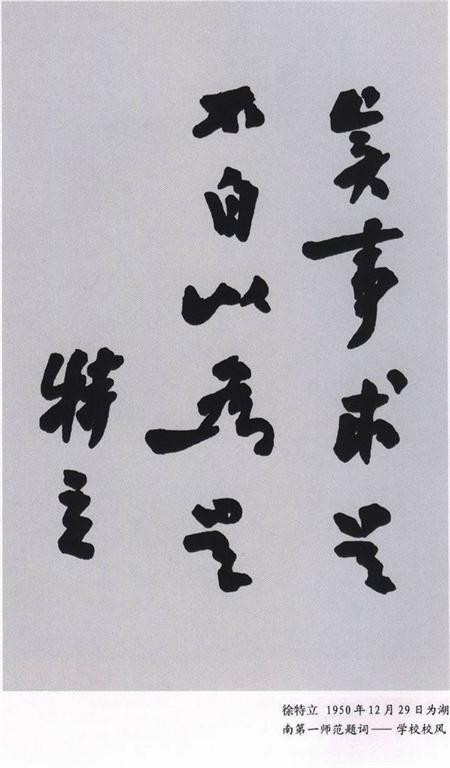 实事求是
不自以为是
特立
徐特立 1950年12月29日为湖
南第一师范题词——学校校风